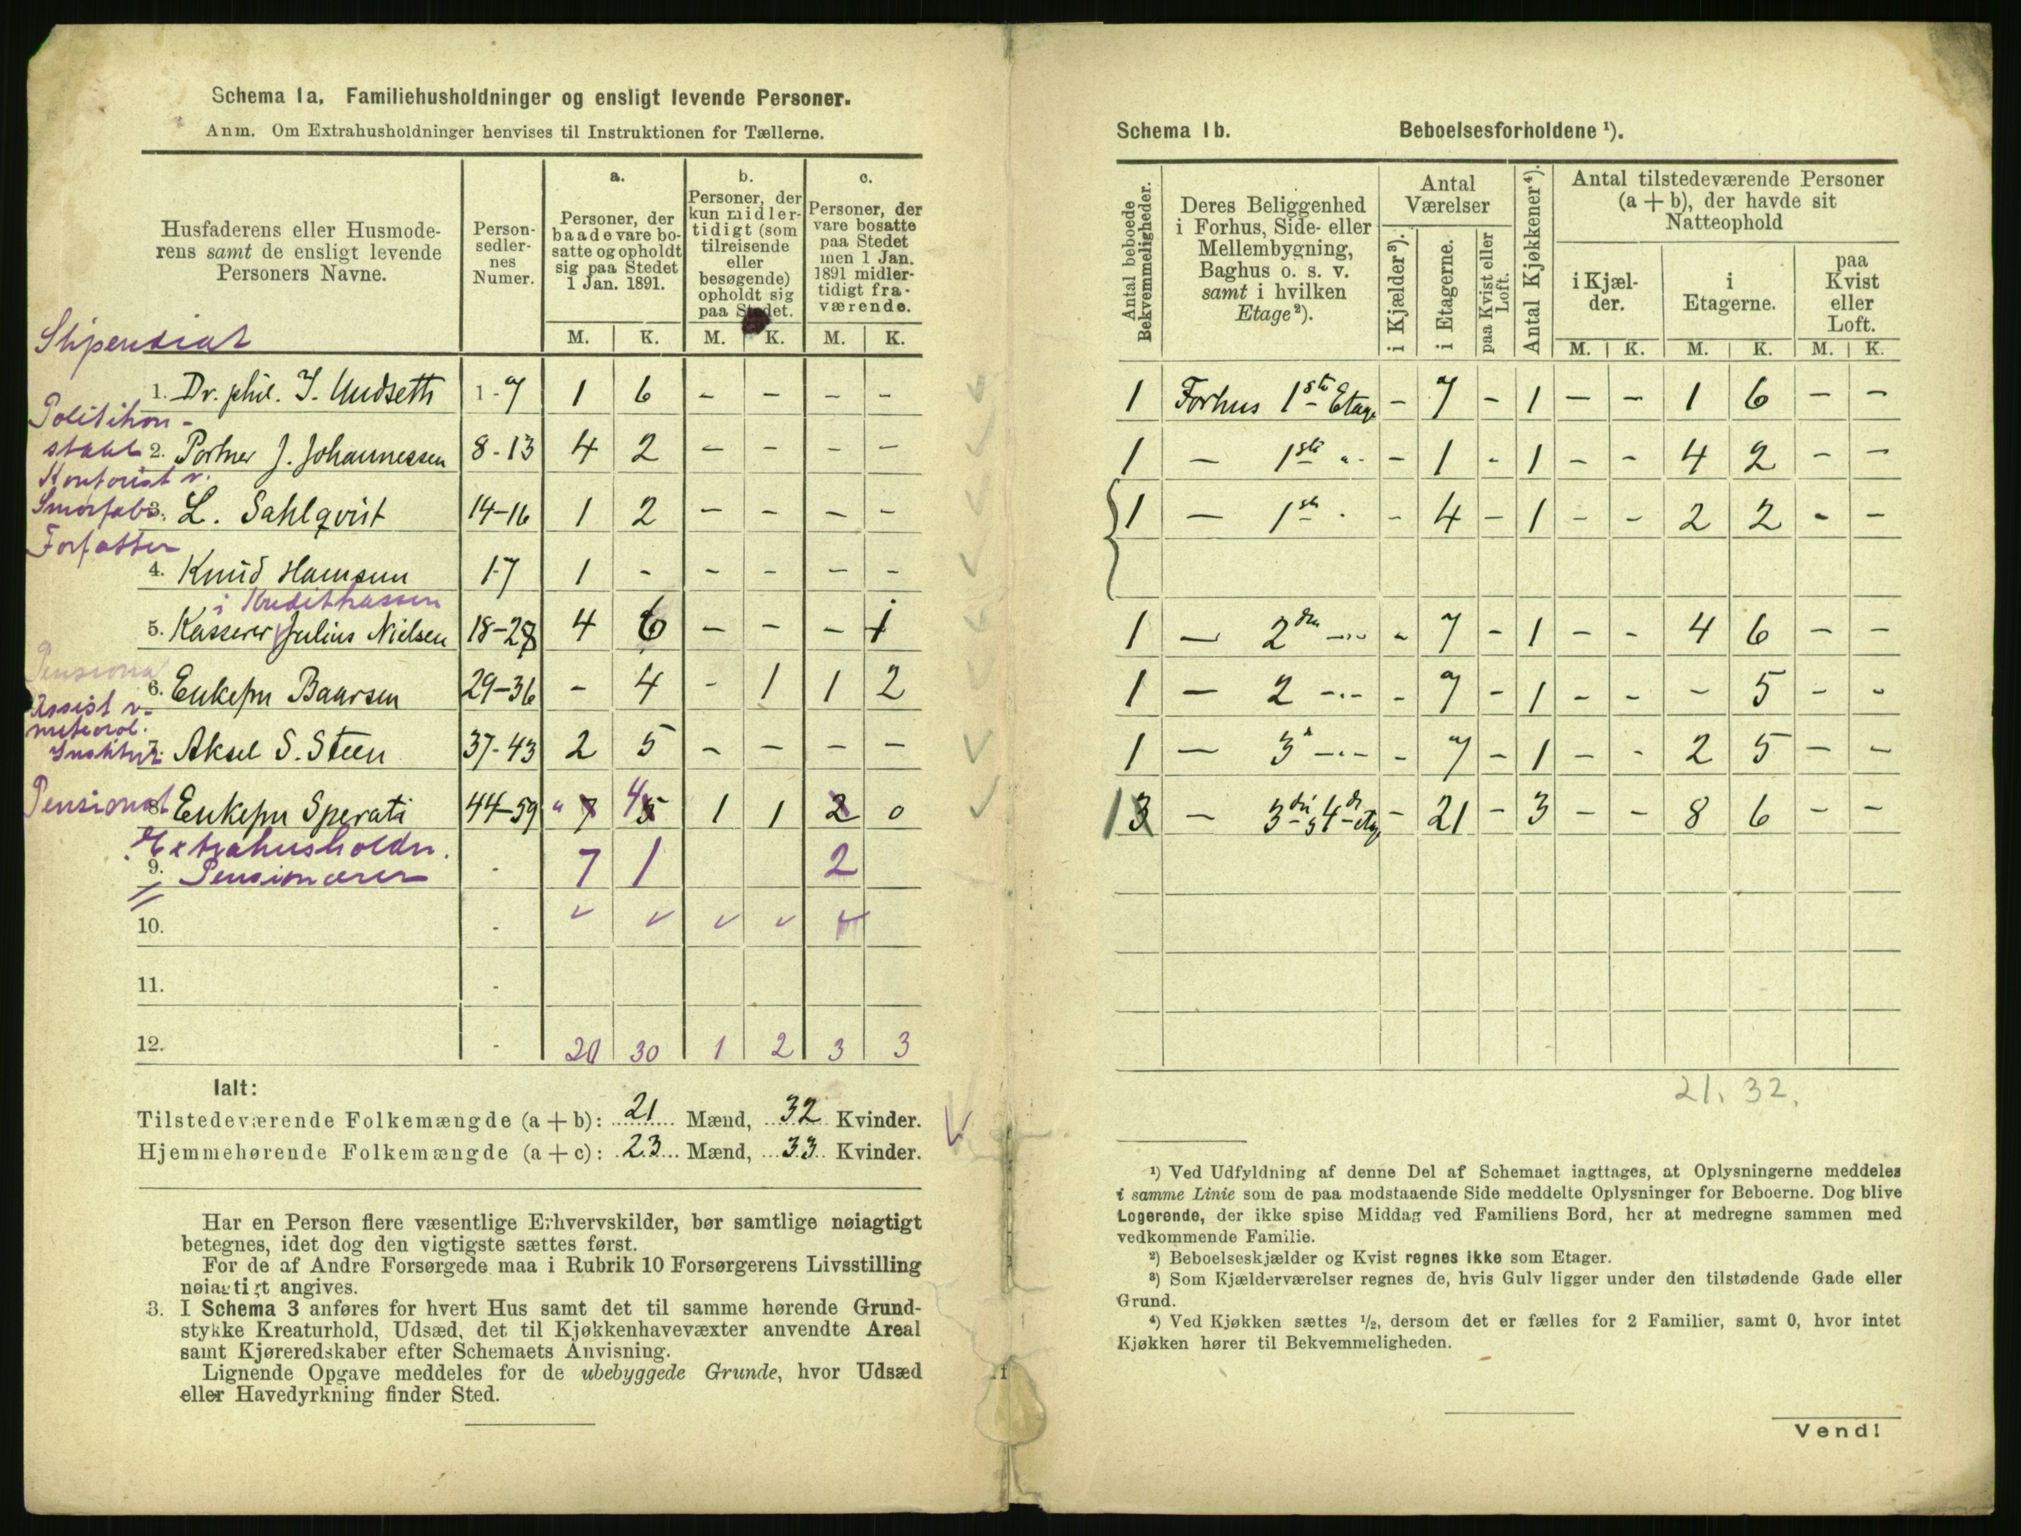 Schema 1a. Familiehusholdninger og ensligt levende Personer.
Anm. Om Extrahusholdninger henvises til Instruktionen for Tællerne.
Husfaderens eller Husmoderens samt de ensligt levende Personers Navne.
Personsedlernes Numer.
a. Personer, der baade vare bosatte og opholdt sig paa Stedet 1 Jan. 1891.
b. Personer, der kun midlertidigt (som tilreisende eller besøgende) opholdt sig paa Stedet.
c. Personer, der vare bosatte paa Stedet men 1 Jan. 1891 midlertidigt fraværende.
M. K. M. K. M. K.
Stipendiat
1. Dr. phil. I. Undseth 1-7 1 6 - - - -
Politikonstabl
2. Portner J. Johannessen 8-13 4 2 - - - -
Kontorist v. Smørfabr.
3. L. Sahlqvist 14-16 1 2 - - - -
Forfatter
4. Knud Hamsun 17 1 - - - - -
i Kreditkassen
5. Kasserer Julius Nielsen 18-28 4 6 - - - 1
Pensionat
6. Enkefru Baarsen 29-36 - 4 - 1 1 2
Assist v. meteorol. Institut
7. Aksel S. Steen 37-43 2 5 - - - -
Pensionat
8. Enkefru Sperati 44-59 " 7 4 5 1 1 2 0
Extrahusholdn.
9. Pensionærer - 7 1 2
10. -
11. -
12. - 20 30 1 2 3 3
Ialt:
Tilstedeværende Folkemængde (a + b): 21 Mænd, 32 Kvinder.
Hjemmehørende Folkemængde (a + c): 23 Mænd, 33 Kvinder.
Har en Person flere væsentlige Erhvervskilder, bør samtlige nøiagtigt
betegnes, idet dog den vigtigste sættes først.
For de af Andre Forsørgede maa i Rubrik 10 Forsørgerens Livsstilling
nøiagtigt angives.
3. I Schema 3 anføres for hvert Hus samt det til samme hørende Grund-
stykke Kreaturhold, Udsæd, det til Kjøkkenhavevæxter anvendte Areal
samt Kjøreredskaber efter Schemaets Anvisning.
Lignende Opgave meddeles for de ubebyggede Grunde, hvor Udsæd
eller Havedyrkning finder Sted.
Schema 1b. Beboelsesforholdene ¹).
Antal beboede Bekvemmeligheder.
Deres Beliggenhed i Forhus, Side- eller Mellembygning, Baghus o. s. v. samt i hvilken Etage²).
Antal Værelser
i Kjælder³).
i Etagerne.
paa Kvist eller Loft.
Antal Kjøkkener⁴).
Antal tilstedeværende Personer (a + b), der havde sit Natteophold
i Kjælder. i Etagerne. paa Kvist eller Loft.
M. K. M. K. M. K.
1 Forhus 1ste Etage - 7 - 1 - - 1 6 - -
1 — 1ste " - 1 - 1 - - 4 2 - -
1 — 1ste - 4 - 1 - - 2 2 - -
1 — 2den - 7 - 1 - - 4 6 - -
1 — 2 - 7 - 1 - - - 5 - -
1 — 3 - 7 - 1 - - 2 5 - -
1 3 — 3die 4de Etg. - 21 - 3 - - 8 6 - -
21. 32.
¹) Ved Udfyldning af denne Del af Schemaet iagttages, at Oplysningerne meddeles
i samme Linie som de paa modstaaende Side meddelte Oplysninger for Beboerne. Dog blive
Logerende, der ikke spise Middag ved Familiens Bord, her at medregne sammen med
vedkommende Familie.
²) Beboelseskjælder og Kvist regnes ikke som Etager.
³) Som Kjælderværelser regnes de, hvis Gulv ligger under den tilstødende Gade eller
Grund.
⁴) Ved Kjøkken sættes ½, dersom det er fælles for 2 Familier, samt 0, hvor intet
Kjøkken hører til Bekvemmeligheden.
Vend!